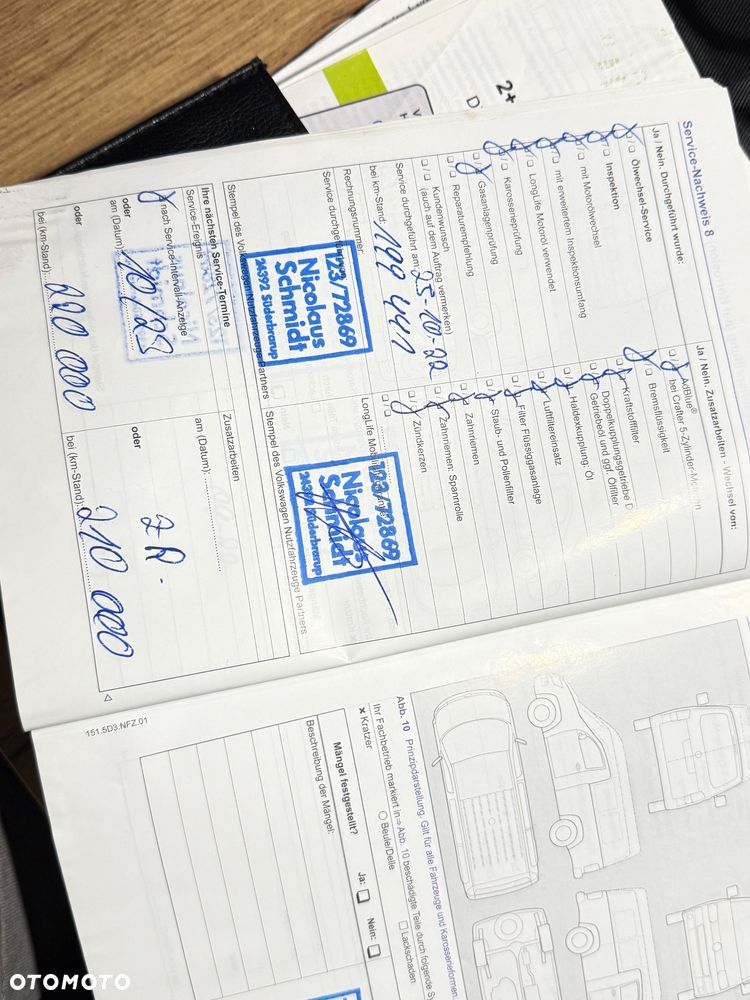 Service-Nachweis 8
Ja / Nein. Durchgeführt wurde:
Ölwechsel-Service
Inspektion
mit Motorölwechsel
mit erweitertem Inspektionsumfang
LongLife Motoröl verwendet
Karosserieprüfung
Gasanlagenprüfung
Reparaturempfehlung
Kundenwunsch
(auch auf dem Auftrag vermerken)
Service durchgeführt am: 25-10-22
bei km-Stand: 199 441
Rechnungsnummer:
Service durchgeführt
123/72869
Nicolaus
Schmidt
24392 Süderbrarup
Stempel des Volkswagen Nutzfahrzeuge Partners
Ihre nächsten Service-Termine
Service-Ereignis
nach Service-Intervall-Anzeige
am (Datum): 10/23
oder
bei (km-Stand): 220 000
Ja / Nein. Zusatzarbeiten - Wechsel von:
AdBlue®
bei Crafter 5-Zylinder-Motoren
Bremsflüssigkeit
Kraftstofffilter
Doppelkupplungsgetriebe
Getriebeöl und ggf. Ölfilter
Haldexkupplung: Öl
Luftfiltereinsatz
Filter Flüssiggasanlage
Staub- und Pollenfilter
Zahnriemen
Zahnriemen: Spannrolle
Zündkerzen
LongLife
123/72869
Nicolaus
Schmidt
24392 Süderbrarup
Stempel des Volkswagen Nutzfahrzeuge Partners
Zusatzarbeiten
am (Datum):
oder
ZR.
bei (km-Stand): 210 000
151.5D3.NFZ.01
Abb. 10 Prinzipdarstellung. Gilt für alle Fahrzeuge und Karosserieformen.
Ihr Fachbetrieb markiert in ⇒ Abb. 10 beschädigte Teile durch folgende
x Kratzer
Beule/Delle
Lackschaden
Mängel festgestellt?
Ja:
Nein:
Beschreibung der Mängel:
2+
D
OTOMOTO